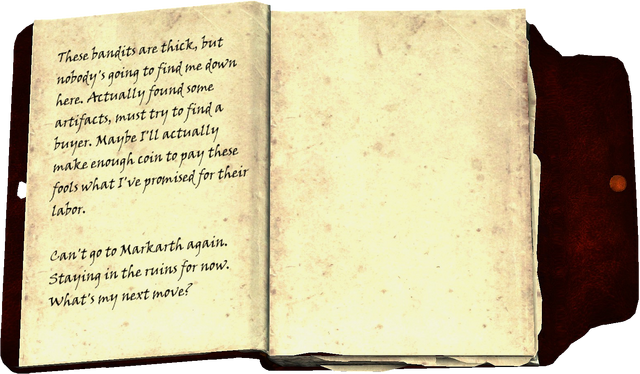 These bandits are thick, but
nobody's going to find me down
here. Actually found some
artifacts, must try to find a
buyer. Maybe I'll actually
make enough coin to pay these
fools what I've promised for their
labor.
Can't go to Markarth again.
Staying in the ruins for now.
What's my next move?